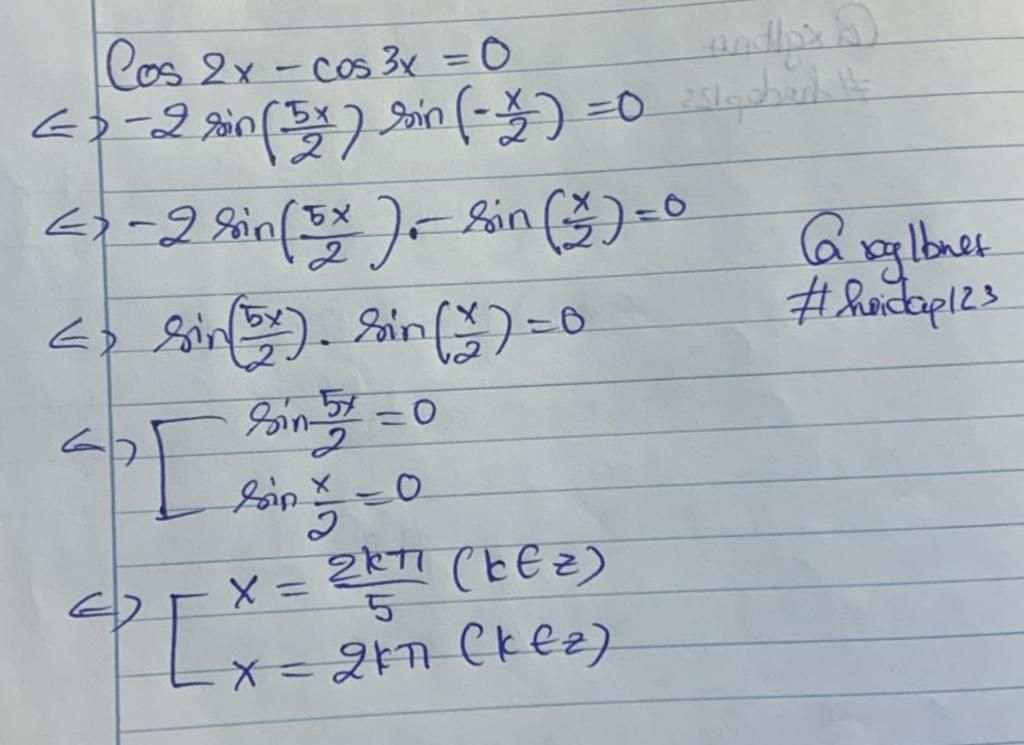 Cos 2x - cos 3x = 0
<=> -2 sin(5x/2) sin(-x/2) = 0
<=> -2 sin(5x/2).- sin(x/2) = 0
<=> sin(5x/2). sin(x/2) = 0
<=> [ sin 5x/2 = 0
sin x/2 = 0
<=> [ x = 2kπ/5 (k∈z)
x = 2kπ (k∈z)